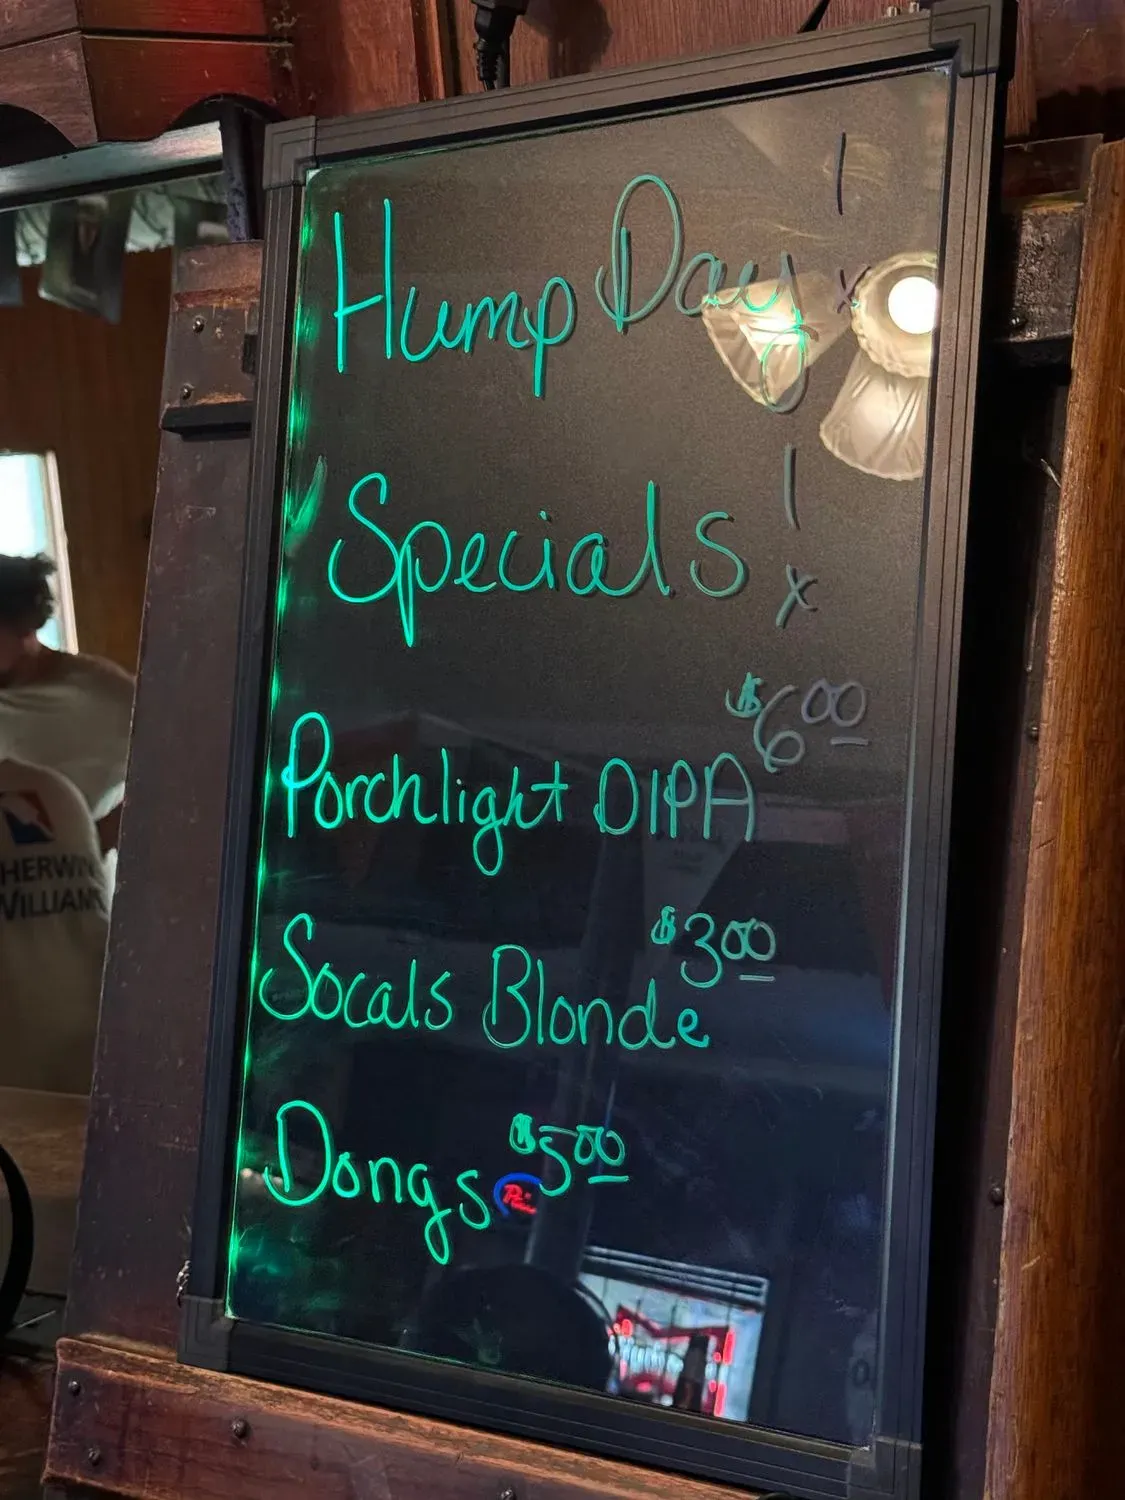 Hump Day!
Specials!
Porchlight DIPA $6.00
Socals Blonde $3.00
Dongs $5.00
HERWIN
WILLIAM